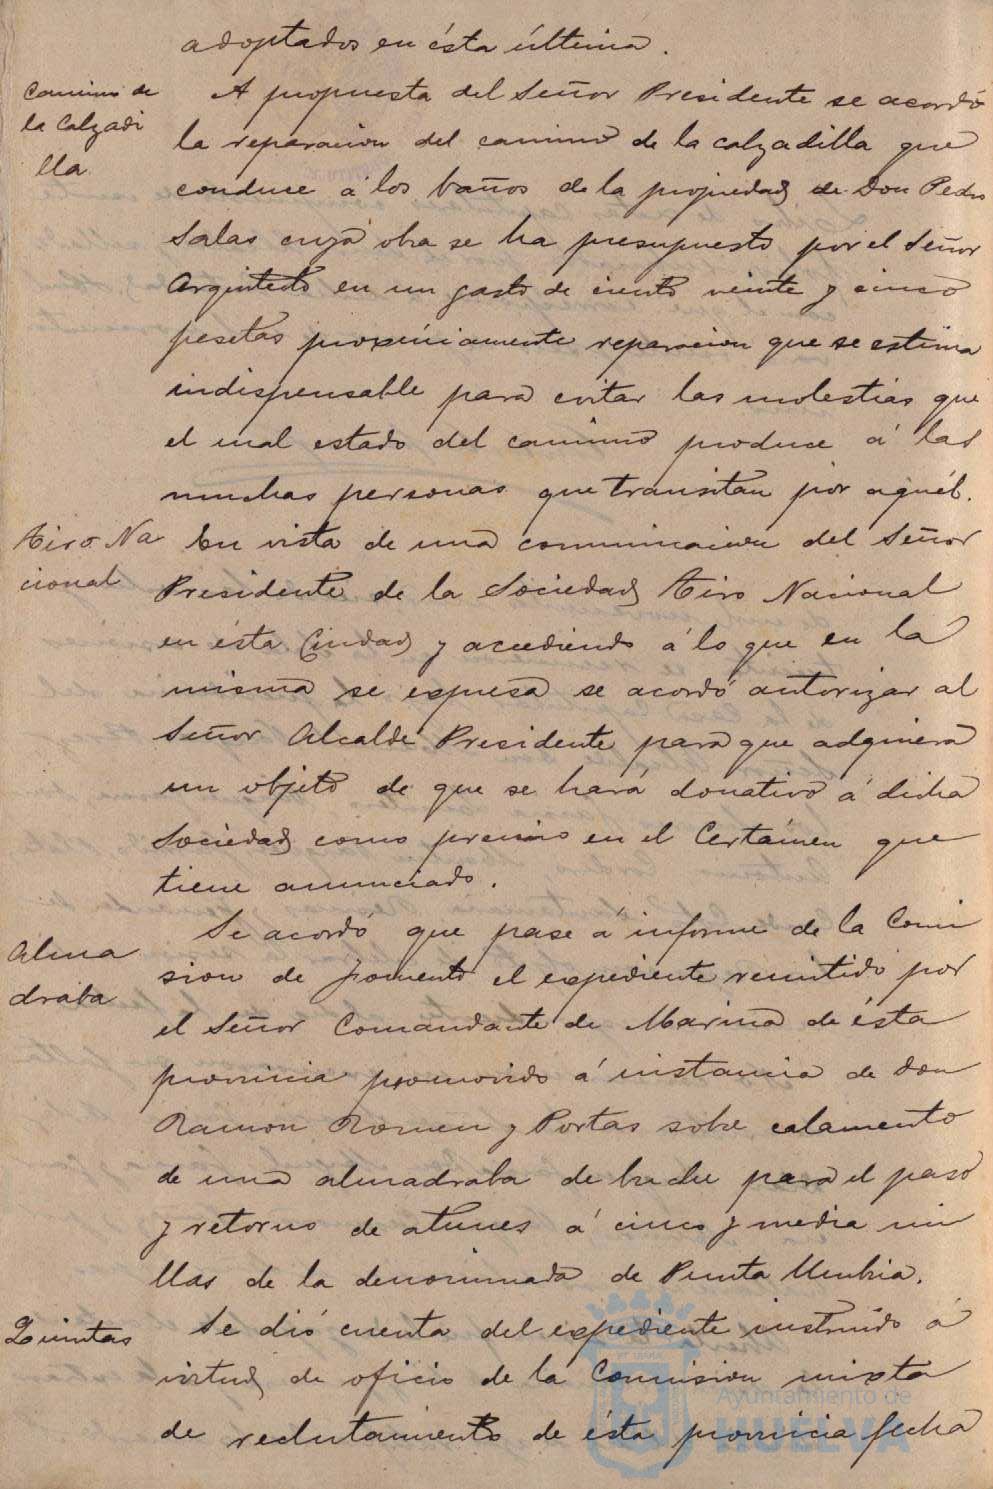 adoptados en ésta última.
Camino de
la Calzadi
lla
A propuesta del Señor Presidente se acordó
la reparacion del camino de la calzadilla que
conduce á los baños de la propiedad de Don Pedro
Salas cuya obra se ha presupuesto por el Señor
Arquitecto en un gasto de ciento veinte y cinco
pesetas proximamente reparacion que se estima
indispensable para evitar las molestias que
el mal estado del camino produce á las
muchas personas que transitan por aquél.
Tiro Na
cional
En vista de una comunicacion del Señor
Presidente de la Sociedad Tiro Nacional
en ésta Ciudad y accediendo á lo que en la
misma se expresa se acordó autorizar al
Señor Alcalde Presidente para que adquiera
un objeto de que se hará donativo á dicha
Sociedad como premio en el Certámen que
tiene anunciado.
Alma
draba
Se acordó que pase á informe de la Comi
sion de fomento el expediente remitido por
el Señor Comandante de Marina de ésta
provincia promovido á instancia de Don
Ramon Romeu y Portas sobre calamento
de una almadraba de buche para el paso
y retorno de atunes á cinco y media mi
llas de la denominada de Punta Umbria.
Quintas
Se dió cuenta del expediente instruido á
virtud de oficio de la Comision mixta
de reclutamiento de ésta provincia fecha
Ayuntamiento de
HUELVA